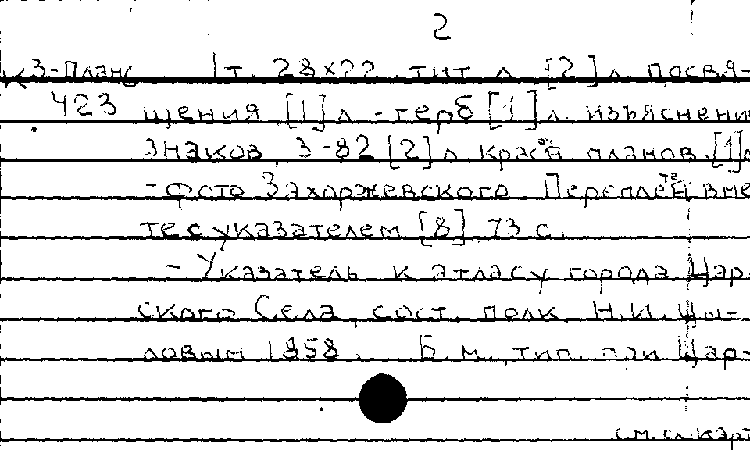 2
К3-План 1 т. 28x22. тит. л. [2] л. посвя-
423 щения [1] л - герб [1] л. изъяснени
знаков, 3-82 [2] л. красв планов. [1] л
- фото Захоржевского. Переплетен вме
те с указателем [8], 73 с.
- Указатель к атласу города Цар-
ского Села, сост. полк. Н.И. Цы-
ловым 1858. Б.м., тип. при Цар-
см. сл. карт